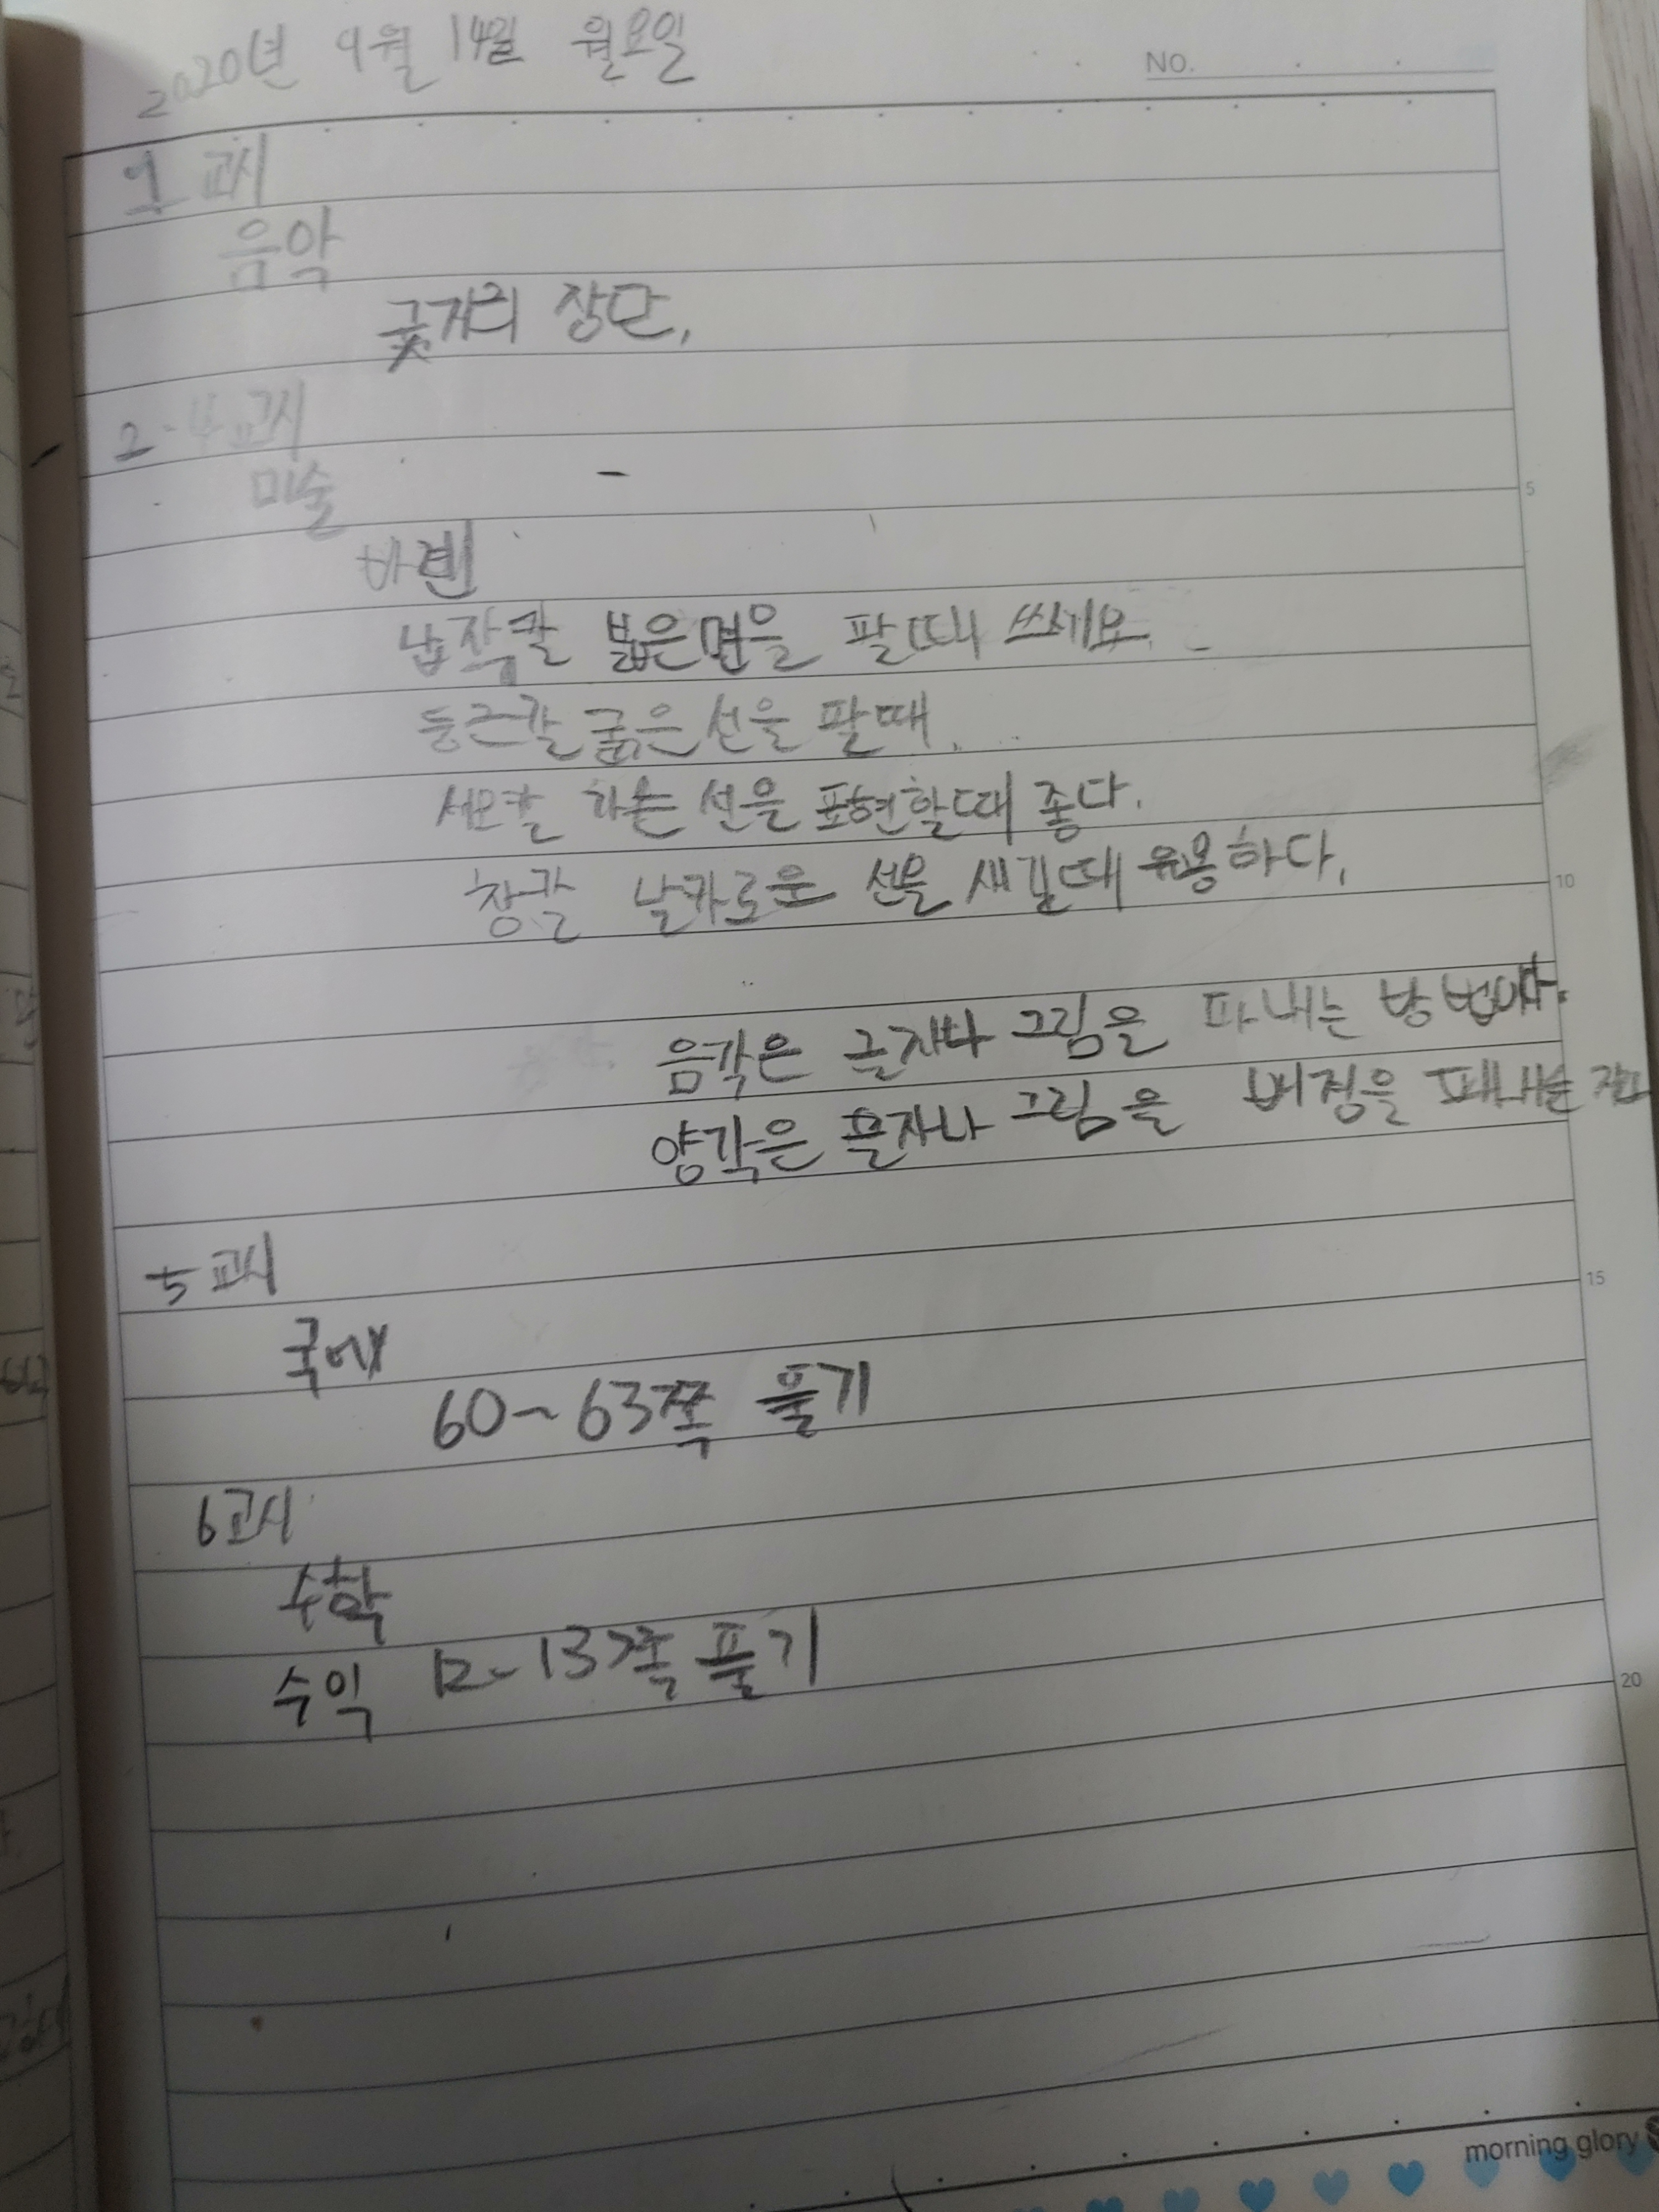 2020년 9월 14일 월요일
NO.
1교시
음악
굿거리 장단,
2-4교시
미술
납작칼 넓은면을 팔때 쓰세요.
둥근칼 굵은 선을 팔때.
세모칼 선을 표현할때 좋다.
창칼 날카로운 선을 새길때 유용하다.
음각은 글자나 그림을 파내는 방법이다.
양각은 문자나 그림을 파내는
5
10
15
20
5교시
국어
60~63쪽 풀기
6교시
수학
수익 12-13쪽 풀기
morning glory